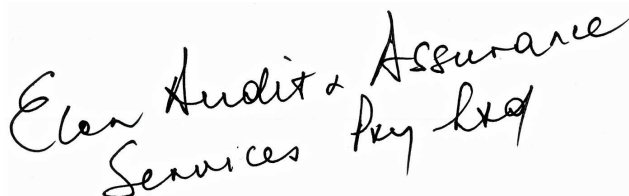 Elon Audit & Assurance
Services Pty Ltd